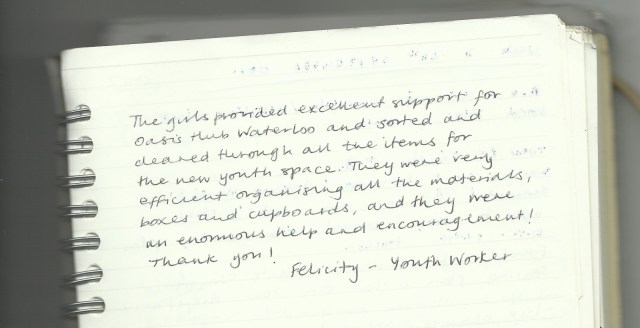 The girls provided excellent support for
Oasis Hub Waterloo and sorted and
cleared through all the items for
the new youth space. They were very
efficient organising all the materials,
boxes and cupboards, and they were
an enormous help and encouragement!
Thank you!
Felicity - Youth Worker